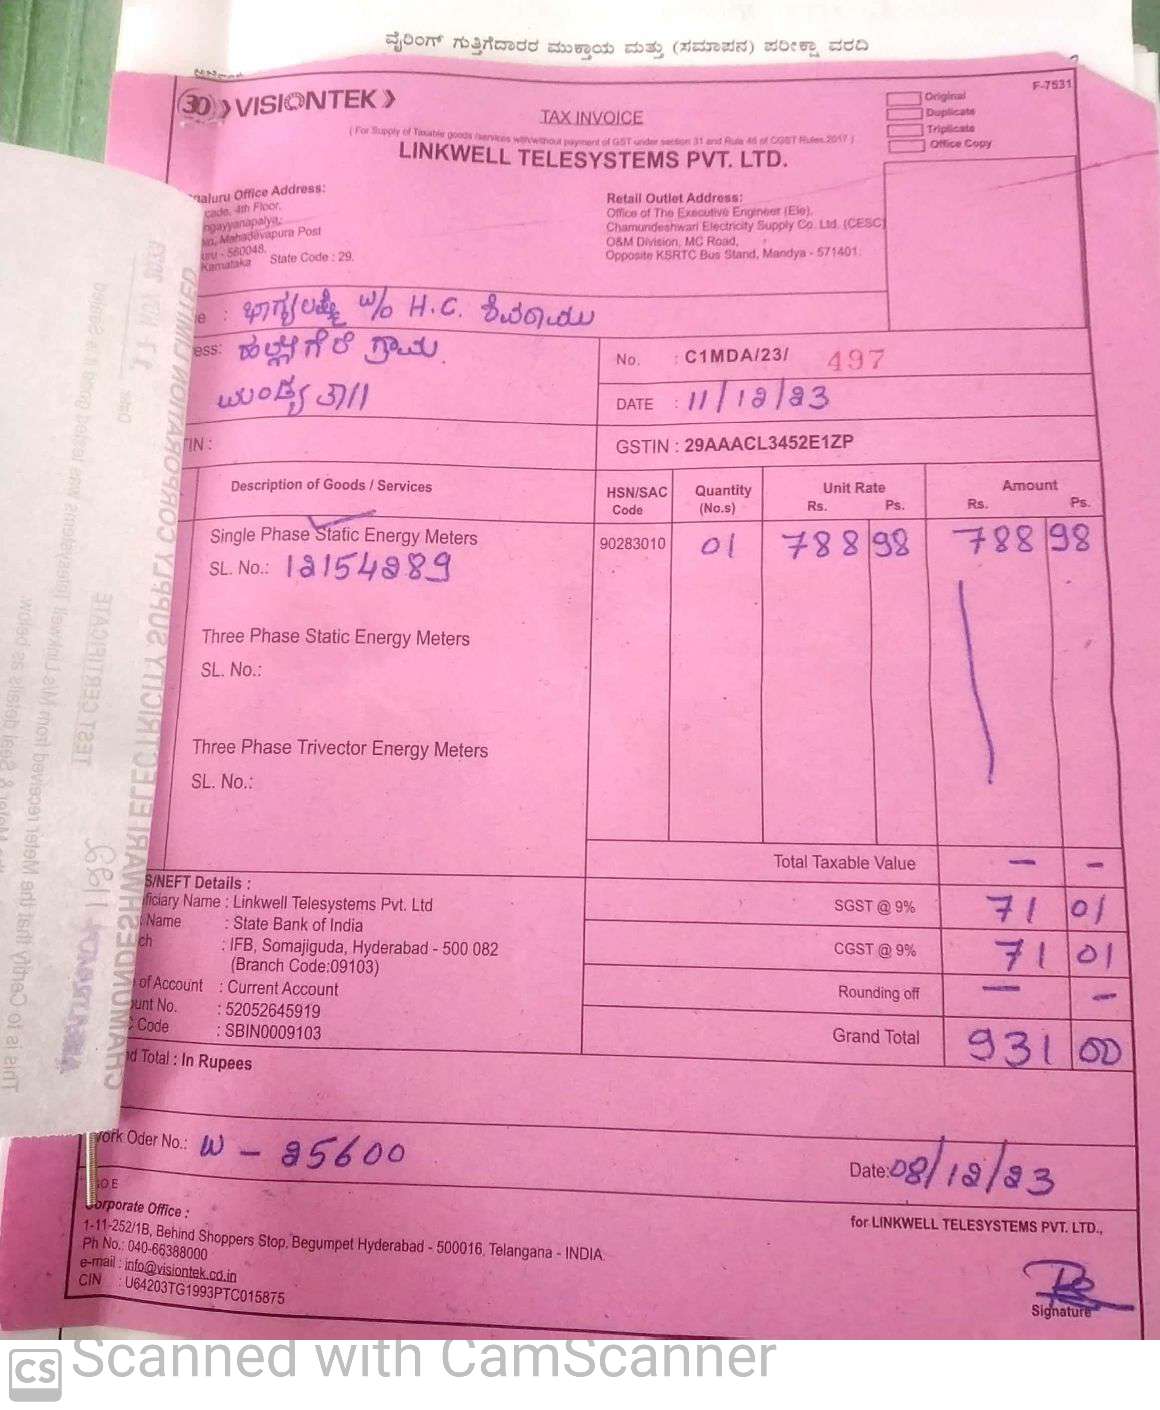 ವೈರಿಂಗ್ ಗುತ್ತಿಗೆದಾರರ ಮುಕ್ತಾಯ ಮತ್ತು (ಸಮಾಪನ) ಪರೀಕ್ಷಾ ವರದಿ
F-7531
30 VISIONTEK
TAX INVOICE
Original
Duplicate
Triplicate
Office Copy
( For Supply of Taxable goods /services with/without payment of GST under section 31 and Rule 46 of CGST Rules.2017 )
LINKWELL TELESYSTEMS PVT. LTD.
aluru Office Address:
cade, 4th Floor,
ngayyanapalya,
Mahadevapura Post
uru - 560048.
Karnataka State Code : 29.
Retail Outlet Address:
Office of The Executive Engineer (Ele),
Chamundeshwari Electricity Supply Co. Ltd. (CESC)
O&M Division, MC Road,
Opposite KSRTC Bus Stand, Mandya - 571401.
e : ಭಾಗ್ಯಲಕ್ಷ್ಮಿ W/o H.C. ಶಿವರಾಮು
ess: ಹಳ್ಳೆಗೆರೆ ಗ್ರಾಮ.
ಮಂಡ್ಯ ತಾ||
No. : C1MDA/23/ 497
DATE : 11/12/23
TIN :
GSTIN : 29AAACL3452E1ZP
Description of Goods / Services
HSN/SAC Code
Quantity (No.s)
Unit Rate Rs. Ps.
Amount Rs. Ps.
Single Phase Static Energy Meters 90283010 01 788 98 788 98
SL. No.: 12154289
Three Phase Static Energy Meters
SL. No.:
Three Phase Trivector Energy Meters
SL. No.:
Total Taxable Value — —
SGST @ 9% 71 01
CGST @ 9% 71 01
Rounding off — —
Grand Total 931 00
S/NEFT Details :
ficiary Name : Linkwell Telesystems Pvt. Ltd
Name : State Bank of India
ch : IFB, Somajiguda, Hyderabad - 500 082
(Branch Code:09103)
of Account : Current Account
unt No. : 52052645919
Code : SBIN0009103
d Total : In Rupees
ork Oder No.: W - 25600
Date: 08/12/23
O.E
orporate Office :
1-11-252/1B, Behind Shoppers Stop, Begumpet Hyderabad - 500016, Telangana - INDIA
Ph No.: 040-66388000
e-mail : info@visiontek.co.in
CIN : U64203TG1993PTC015875
for LINKWELL TELESYSTEMS PVT. LTD.,
Signature
CHAMUNDESHWARI ELECTRICITY SUPPLY CORPORATION LIMITED
TEST CERTIFICATE
This is to Certify that the Meter received from M/s Linkwell Telesystems was tested
Date
CS Scanned with CamScanner